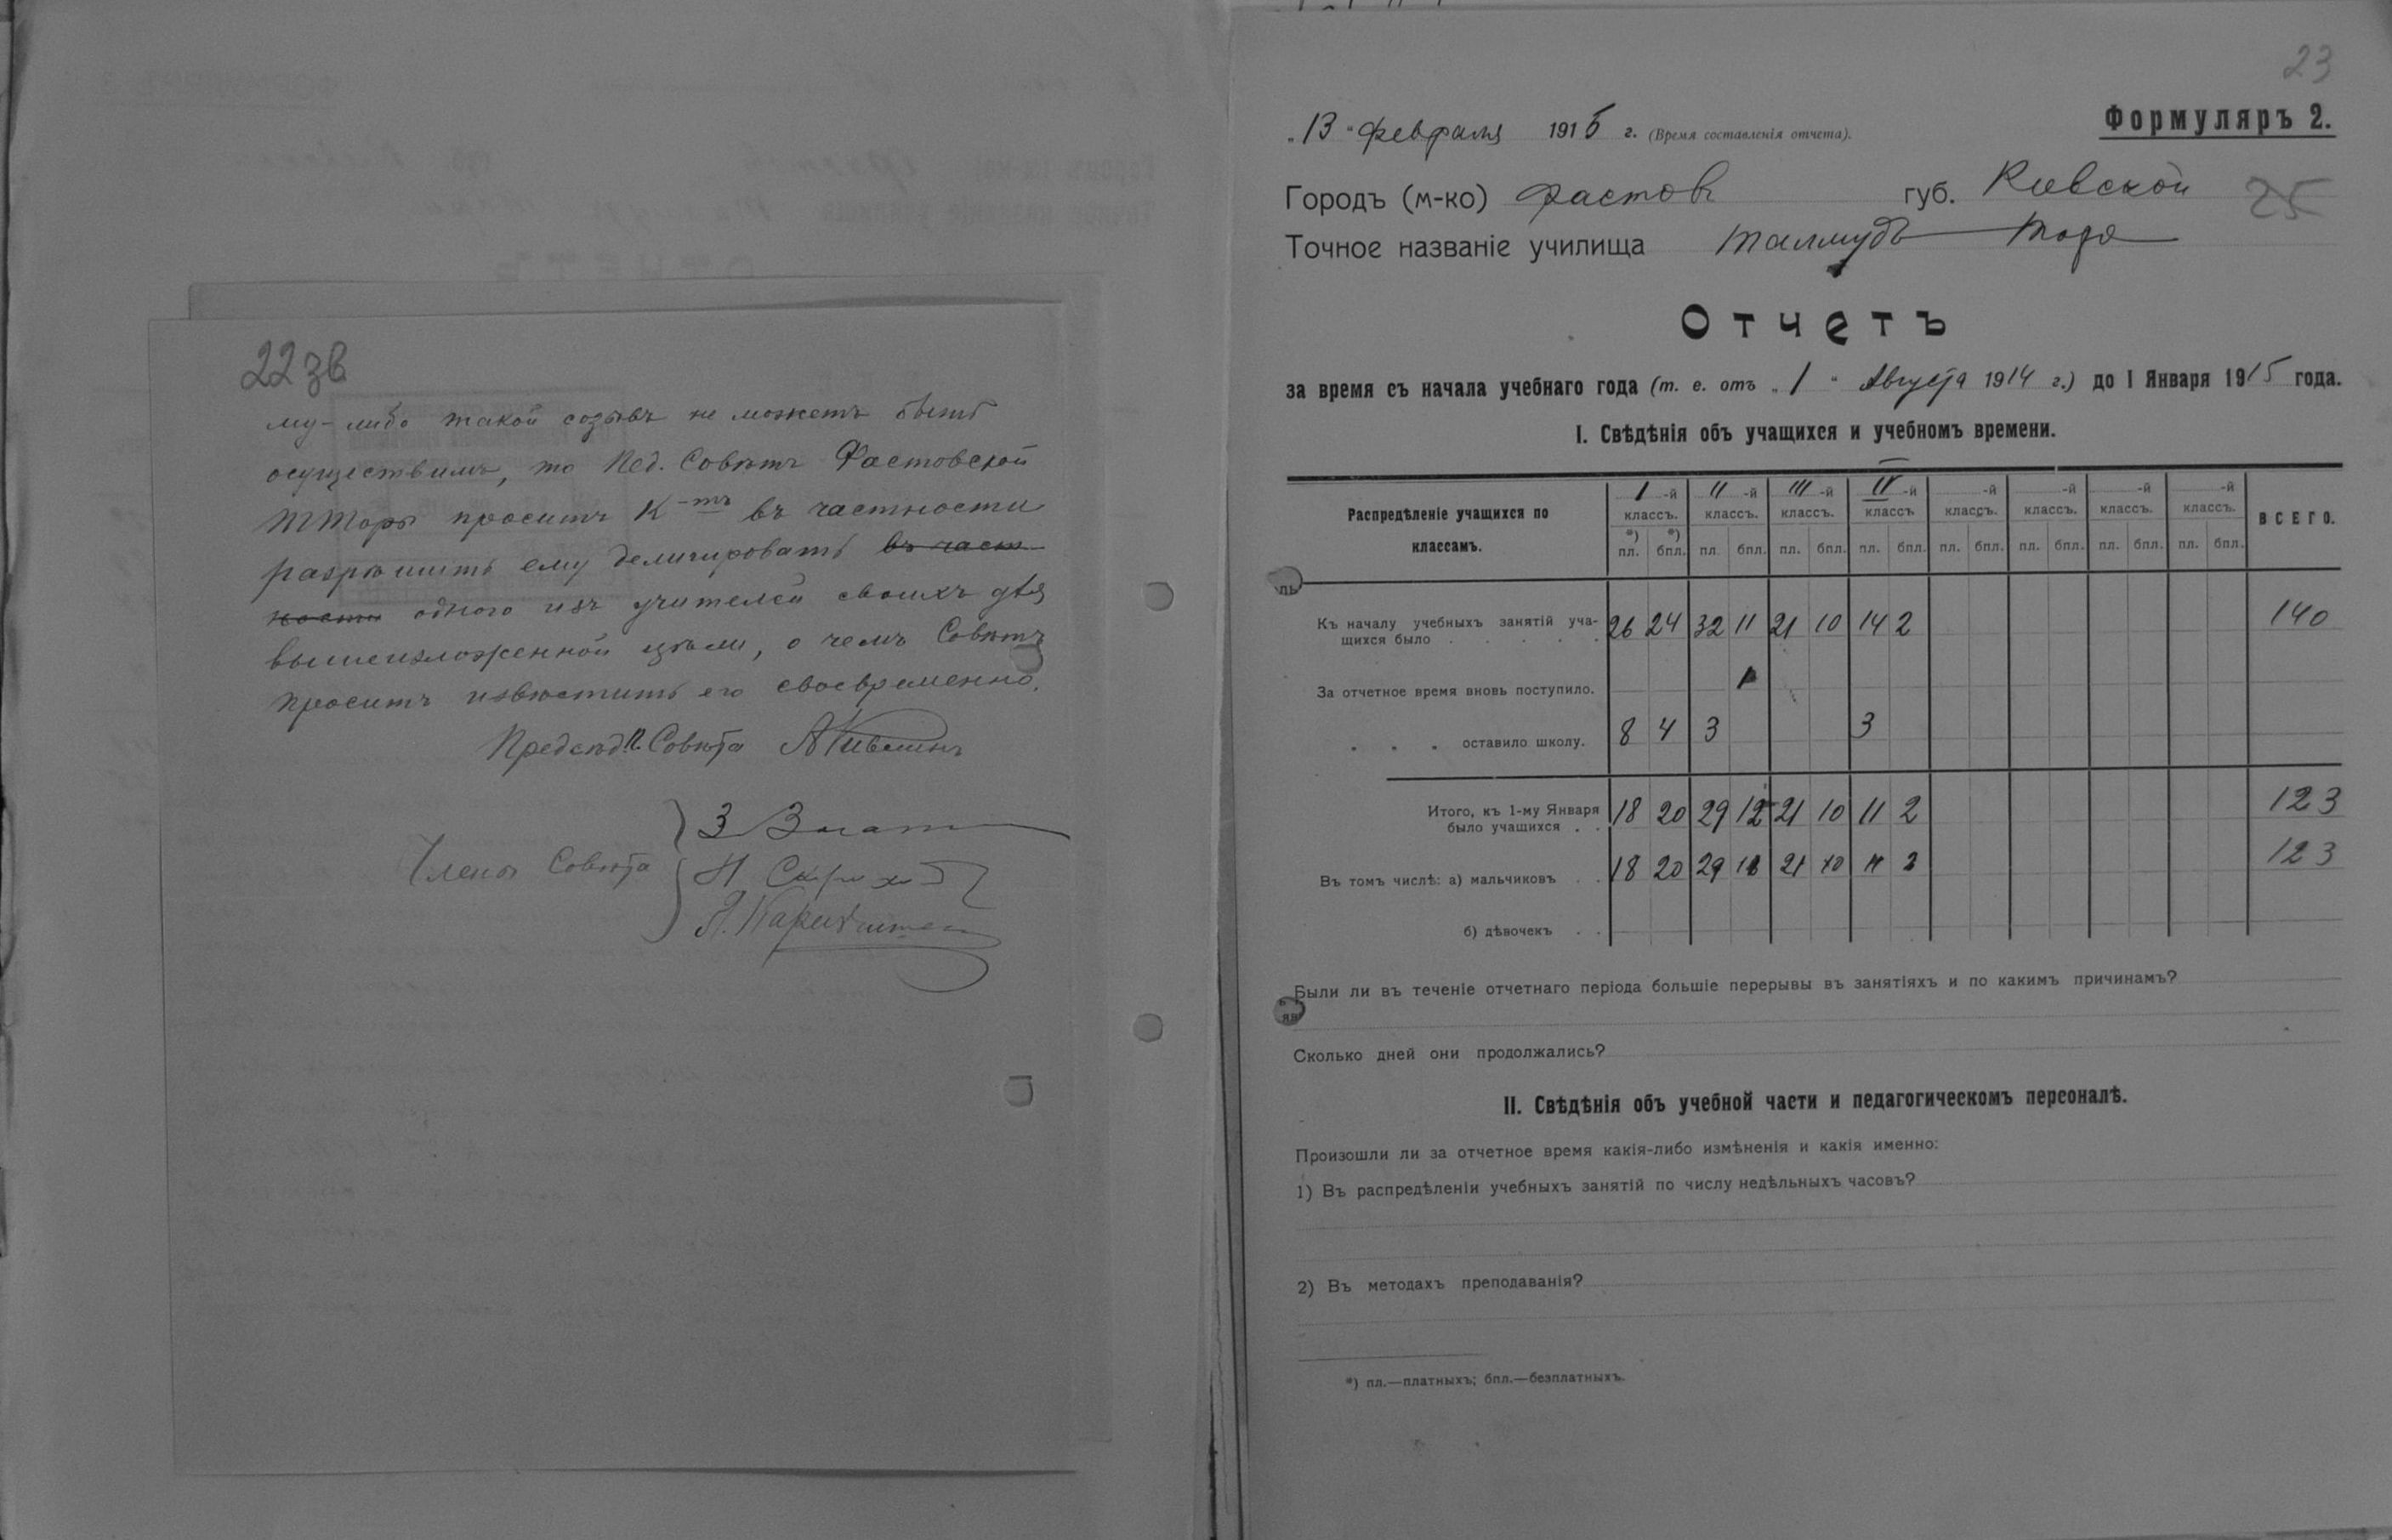 22 зв
му-либо такой созывъ не можетъ быть
осуществимъ, то Пед. Совѣтъ Фастовской
Т Торы проситъ К-тъ въ частности
разрѣшить ему делигировать въ част-
ности одного изъ учителей своихъ для
вышеизложенной цѣли, о чемъ Совѣтъ
проситъ извѣстить его своевременно.
Предсѣд. П. Совѣта
Члены Совѣта
23
Формуляръ 2.
„13“ февраля 1915 г. (Время составленія отчета).
Городъ (м-ко) Фастовъ губ. Киевской
25
Точное названіе училища Талмудъ-Тора
Отчетъ
за время съ начала учебнаго года (т. е. отъ „1“ Августа 1914 г.) до 1 Января 1915 года.
I. Свѣдѣнія объ учащихся и учебномъ времени.
Распредѣленіе учащихся по классамъ.
I-й классъ. II-й классъ. III-й классъ. IV-й классъ -й классъ. -й классъ. -й классъ. -й классъ. ВСЕГО.
*) пл. *) бпл. пл. бпл. пл. бпл. пл. бпл. пл. бпл. пл. бпл. пл. бпл. пл. бпл.
Къ началу учебныхъ занятій уча-
щихся было . . . . . 26 24 32 11 21 10 14 2 140
За отчетное время вновь поступило. 1
„ „ „ оставило школу. 8 4 3 3
Итого, къ 1-му Января
было учащихся . . 18 20 29 12 21 10 11 2 123
Въ томъ числѣ: а) мальчиковъ . . 18 20 29 12 21 10 11 2 123
б) дѣвочекъ . .
Были ли въ теченіе отчетнаго періода большіе перерывы въ занятіяхъ и по какимъ причинамъ?
Сколько дней они продолжались?
II. Свѣдѣнія объ учебной части и педагогическомъ персоналѣ.
Произошли ли за отчетное время какія-либо измѣненія и какія именно:
1) Въ распредѣленіи учебныхъ занятій по числу недѣльныхъ часовъ?
2) Въ методахъ преподаванія?
*) пл.—платныхъ; бпл.—безплатныхъ.